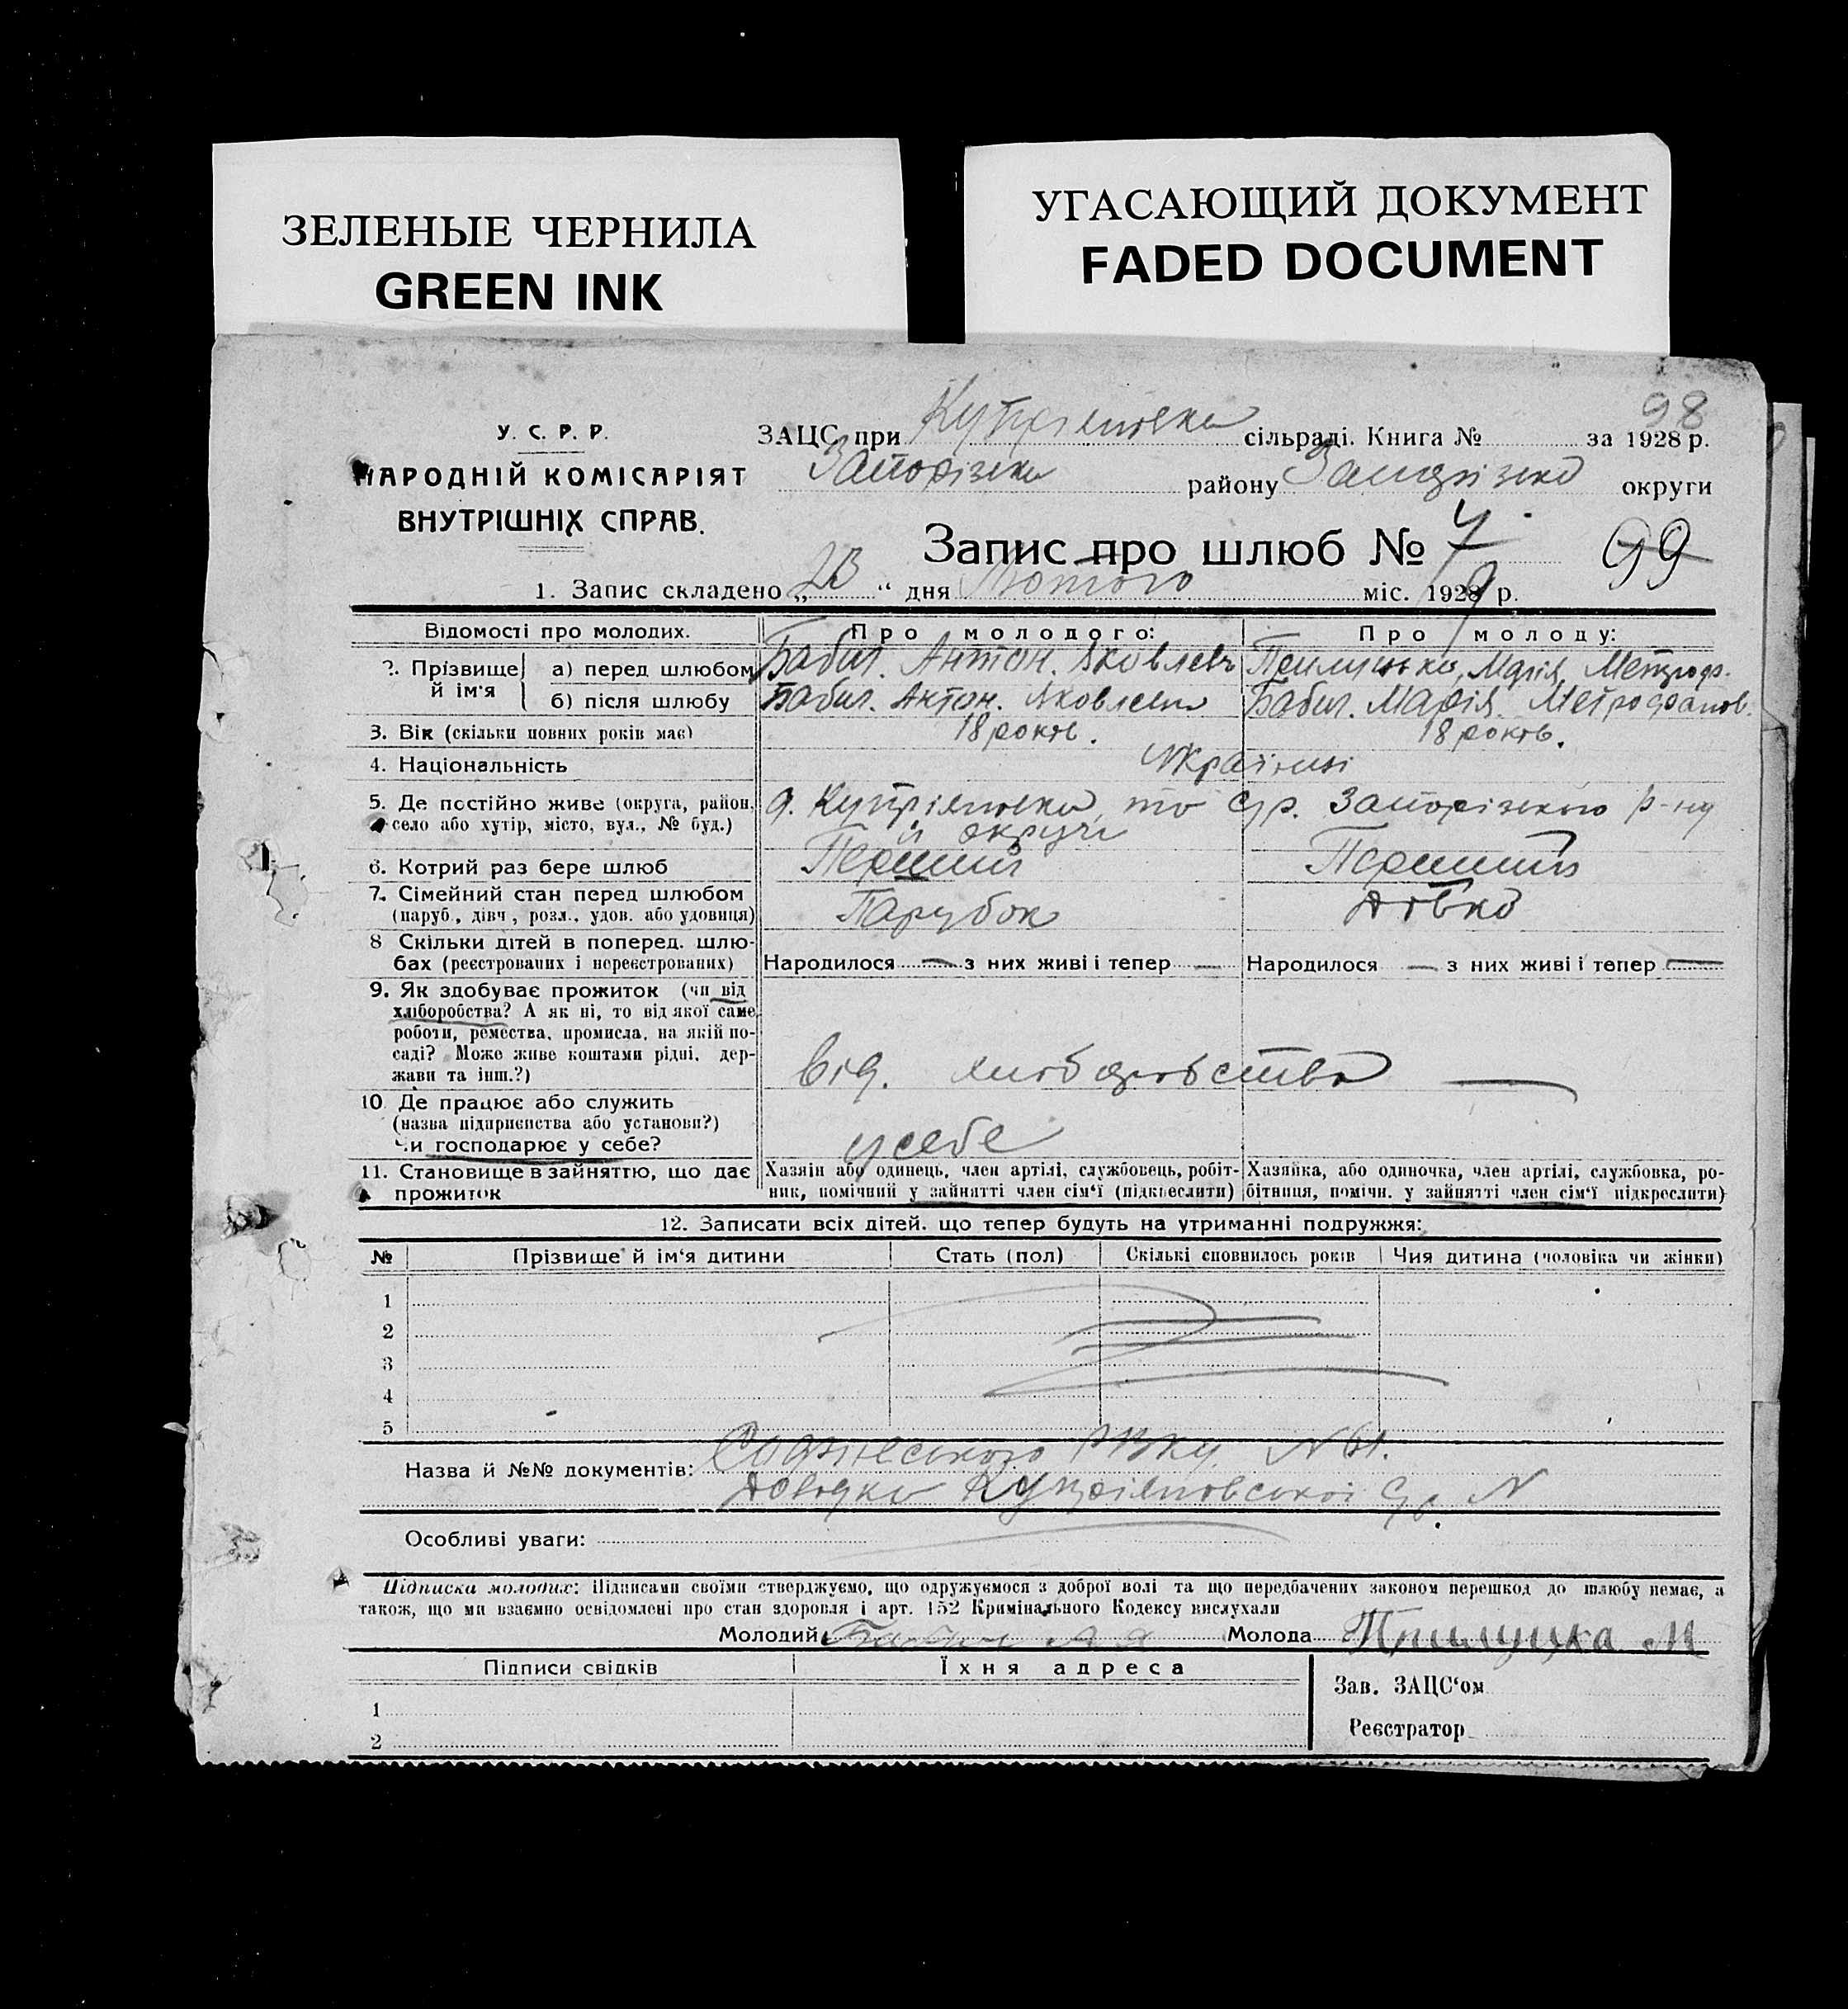 ЗЕЛЕНЫЕ ЧЕРНИЛА
GREEN INK
УГАСАЮЩИЙ ДОКУМЕНТ
FADED DOCUMENT
98
У. С. Р. Р.
НАРОДНІЙ КОМІСАРІЯТ
ВНУТРІШНІХ СПРАВ.
ЗАЦС при сільраді. Книга № за 1928 р.
району округи
Запис про шлюб № 99
1. Запис складено „23“ дня Лютого міс. 1929 р.
Відомості про молодих. Про молодого: Про молоду:
2. Прізвище й ім'я а) перед шлюбом Бабич. Антон. Яковлевъ Марія,
б) після шлюбу Бабич. Антон. Бабич. Марія.
3. Вік (скільки повних років має) 18 років. 18 років.
4. Національність
5. Де постійно живе (округа, район, село або хутір, місто, вул., № буд.) р-ну
й округи
6. Котрий раз бере шлюб Перший Перший
7. Сімейний стан перед шлюбом (паруб., дівч, розл., удов. або удовиця) Парубок Дівка
8 Скільки дітей в поперед. шлюбах (реєстрованих і нереєстрованих) Народилося — з них живі і тепер — Народилося — з них живі і тепер —
9. Як здобуває прожиток (чи від
хліборобства? А як ні, то від якої саме
роботи, ремества, промисла, на якій по-
саді? Може живе коштами рідні, дер-
жави та інш.?) від. хліборобства —
10. Де працює або служить
(назва підприємства або установи?)
Чи господарює у себе? у себе
11. Становище в зайняттю, що дає прожиток
Хазяїн або одинець, член артілі, службовець, робіт-
ник, помічний у зайнятті член сім'ї (підкреслити)
Хазяйка, або одиночка, член артілі, службовка, ро-
бітниця, помічн. у зайнятті член сім'ї підкреслити)
12. Записати всіх дітей. що тепер будуть на утриманні подружжя:
№ Прізвище й ім'я дитини Стать (пол) Скількі сповнилось років Чия дитина (чоловіка чи жінки)
1
2
3
4
5
Назва й №№ документів: № 61.
Довідка №
Особливі уваги:
Підписка молодих: Підписами своїми стверджуємо, що одружуємося з доброї волі та що передбачених законом перешкод до шлюбу немає, а
також, що ми взаємно освідомлені про стан здоровля і арт. 152 Кримінального Кодексу вислухали
Молодий Бабич А Я Молода М
Підписи свідків Їхня адреса
Зав. ЗАЦС'ом
1
Реєстратор
2